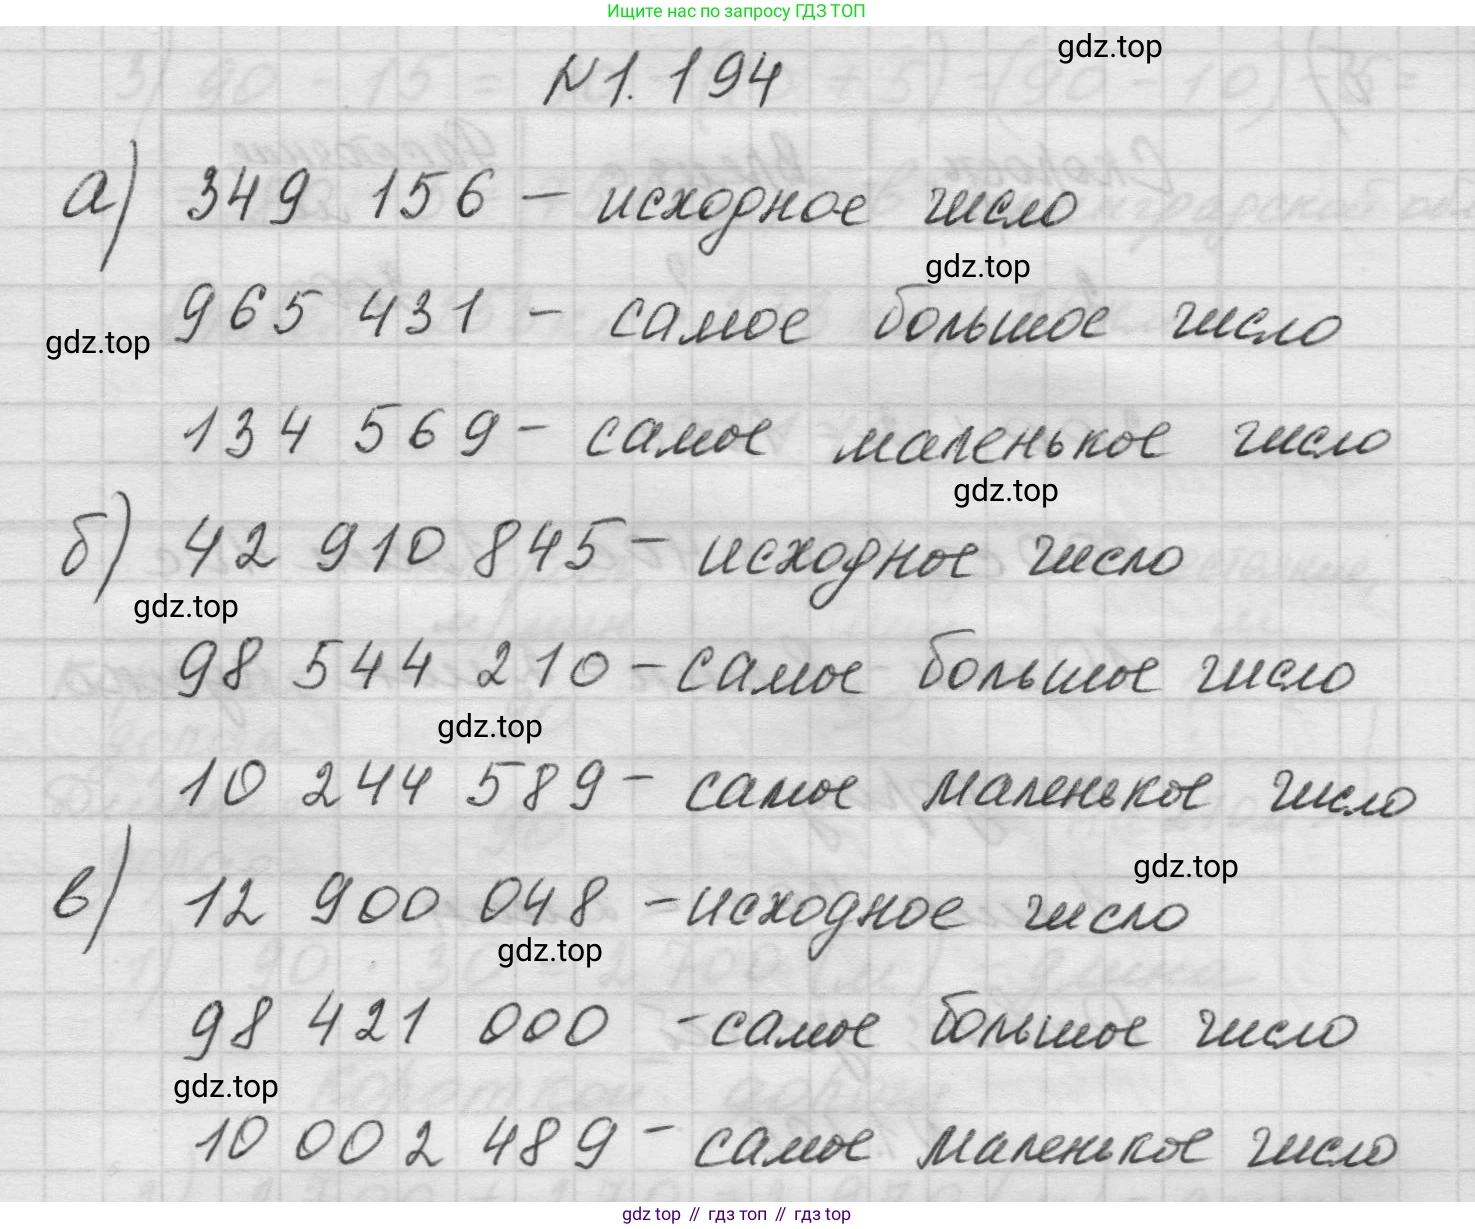 Ищите нас по запросу ГДЗ ТОП
№1.194
gdz.top
а) 349 156 – исходное число
gdz.top
965 431 – самое большое число
gdz.top
134 569 – самое маленькое число
gdz.top
б) 42 910 845 – исходное число
gdz.top
98 544 210 – самое большое число
gdz.top
10 244 589 – самое маленькое число
gdz.top
в) 12 900 048 – исходное число
gdz.top
98 421 000 – самое большое число
gdz.top
10 002 489 – самое маленькое число
gdz top // гдз топ // гдз top